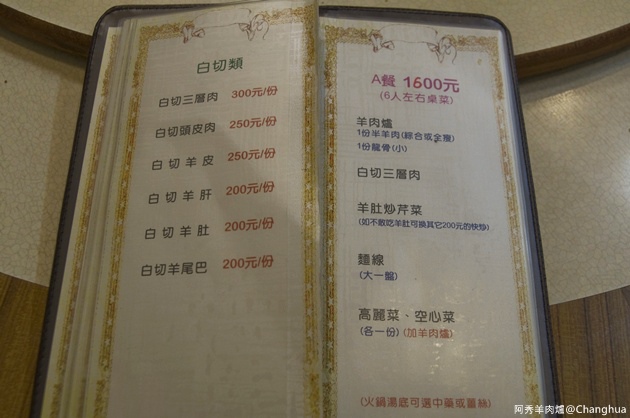 白切類
白切三層肉 300元/份
白切頭皮肉 250元/份
白切羊皮 250元/份
白切羊肝 200元/份
白切羊肚 200元/份
白切羊尾巴 200元/份
A餐 1600元
(6人左右桌菜)
羊肉爐
1份半羊肉(綜合或全瘦)
1份龍骨(小)
白切三層肉
羊肚炒芹菜
(如不敢吃羊肚可換其它200元的快炒)
麵線
(大一盤)
高麗菜、空心菜
(各一份)(加羊肉爐)
(火鍋湯底可選中藥或薑絲)
阿秀羊肉爐@Changhua